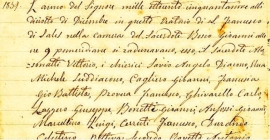 1859.
L'anno del Signore mille ottocento cinquantanove alli
diciotto di Dicembre in questo Oratorio di S. Francesco
di Sales nella camera del Sacerdote Bosco Giovanni alle
ore 9 pomeridiane si radunavano, esso, il Sacerdote
Vittorio, i chierici Savio Angelo Diacono, Rua
Michele Suddiacono, Cagliero Giovanni, Francesia
Gio Battista, Provera Francesco, Ghivarello Carlo,
Lazzero Giuseppe, Bonetti Giovanni, Anfossi Giovanni,
Marcellino Luigi, Cerruti Francesco, Durando
Celestino, Pettiva Secondo, Rovetto Antonio